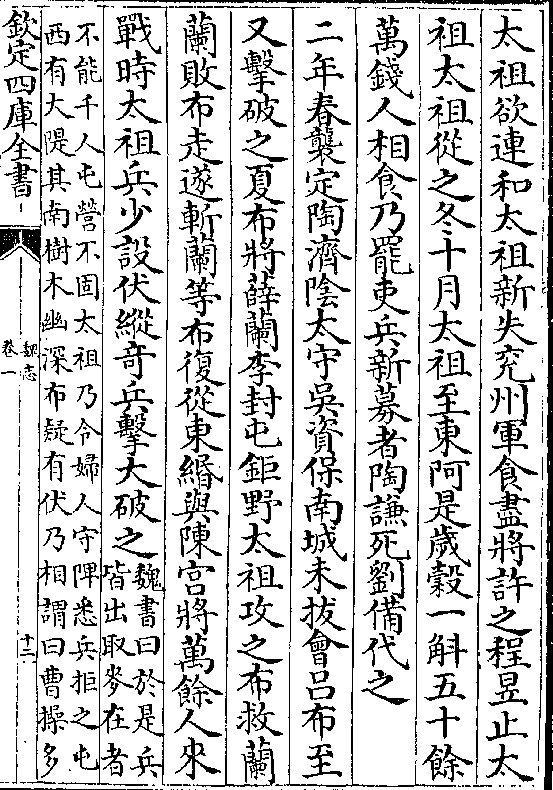 太祖欲連和太祖新失兖州軍食盡將許之程昱止太
祖太祖從之冬十月太祖至東阿是歲穀一斛五十餘
萬錢人相食乃罷吏兵新募者陶謙死劉備代之
二年春襲定陶濟陰太守吳資保南城未拔會吕布至
又擊破之夏布將薛蘭李封屯鉅野太祖攻之布救蘭
蘭敗布走遂斬蘭等布復從東緡與陳宮將萬餘人來
戰時太祖兵少設伏縱奇兵擊大破之
魏書曰於是兵
皆出取麥在者
不能千人屯營不固太祖乃令婦人守陴悉兵拒之屯
西有大隄其南樹木幽深布疑有伏乃相謂曰曹操多
欽定四庫全書
魏志
卷一
十二